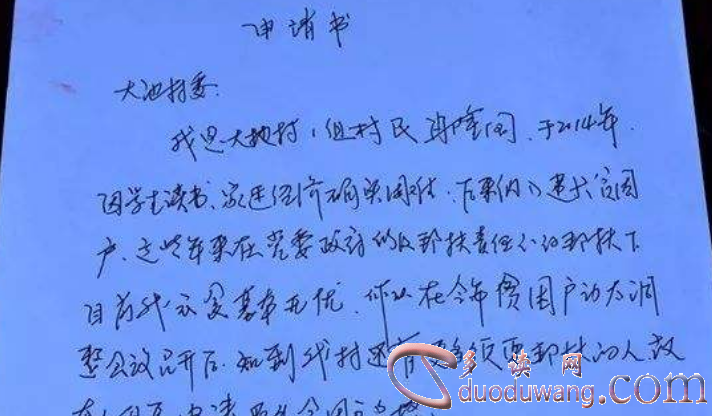 申请书
大池村委:
我是大池村1组村民肖隆国,于2014年,
因学生读书、家庭经济确实困难,后来纳入建卡贫困
户,这些年来在党委政府的及帮扶责任人的帮扶下
目前我家里基本无忧,所以在今年贫困户动态调
整会议召开后,知到我村还有更多须要帮扶的人,故
多读网
duoduwang.com